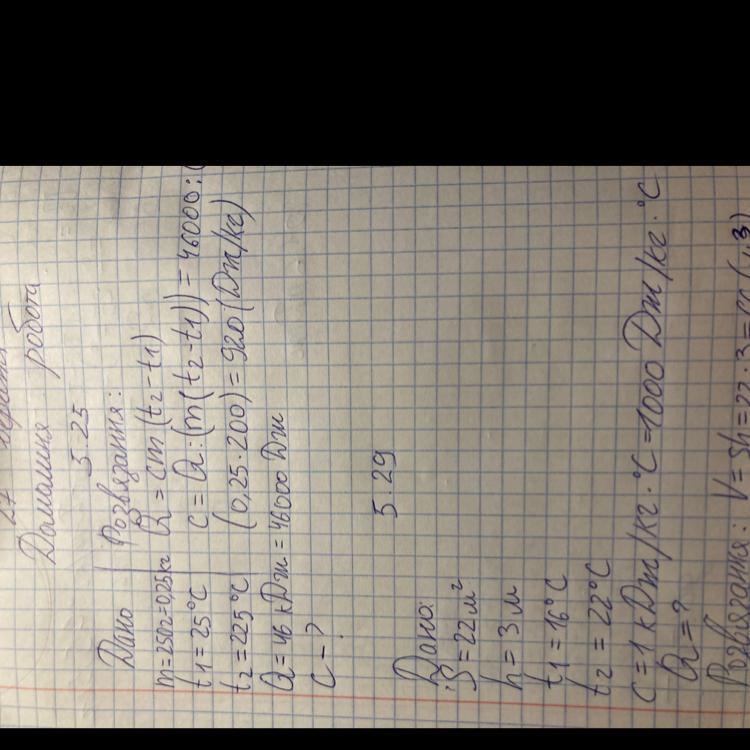 Домашня робота
5.25
Дано Розвязання:
m=250г=0,25кг Q = cm (t2-t1)
t1=25°C c = Q:(m(t2-t1)) = 46000:(
t2=225°C (0,25·200)=920(Дж/кг)
Q=46 кДж = 46000 Дж
c-?
5.29
Дано:
S=22м²
h=3м
t1=16°C
t2=22°C
c=1 кДж/кг·°C=1000 Дж/кг·°C
Q=?
Розвязання: V=Sh=22·3=